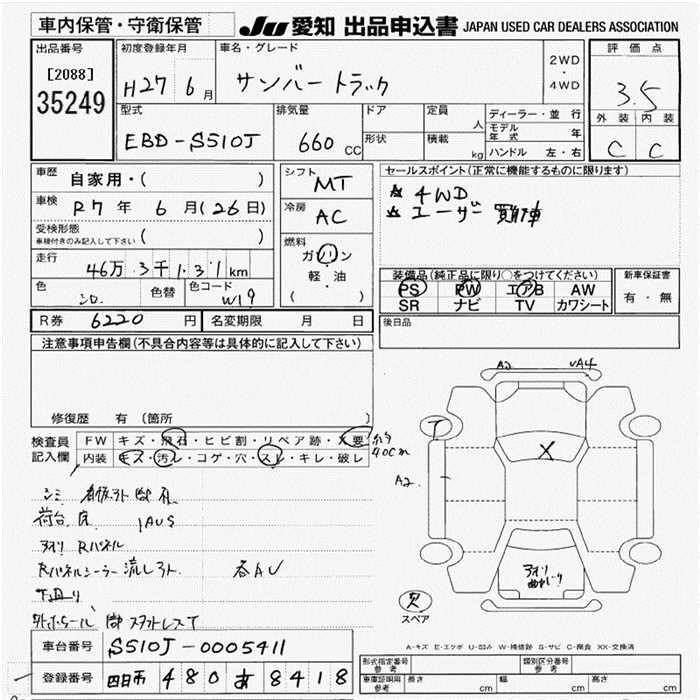 車内保管・守衛保管
JU 愛知 出品申込書 JAPAN USED CAR DEALERS ASSOCIATION
出品番号
[2088]
35249
初度登録年月
H27 6月
車名・グレード
サンバートラック
2WD
・
4WD
評価点
3.5
外装 内装
C C
型式
EBD-S510J
排気量
660 CC
ドア
形状
定員 人
積載 kg
ディーラー・並行
モデル年式 年
ハンドル 左・右
車歴 自家用・( )
車検 R7年 6月(26日)
受検形態
車検付きのみ記入して下さい ( )
走行 46万3千131km
色 シロ.
色替
色コード W19
シフト MT
冷房 AC
燃料
ガソリン
・
軽・油
( )
セールスポイント(正常に機能するものに限ります)
☆ 4WD
☆ ユーザー 買取車
装備品(純正品に限り○をつけてください)
PS PW エアB AW
SR ナビ TV カワシート
新車保証書
有・無
R券 6220円
名変期限 月 日
後日品
注意事項申告欄(不具合内容等は具体的に記入して下さい)
修復歴 有(箇所 )
検査員
記入欄
FW キズ・飛石・ヒビ割・リペア跡・X要
内装 キズ・汚レ・コゲ・穴・スレ・キレ・破レ
40cm
シミ
荷台 床
1AUS
Rパネル
Rパネルシーラー 流し
各AU
下廻り
A2
A4
T
A2
X
欠
スペア
A-キズ E-エクボ U-凹み W-補修跡 S-サビ C-腐食 XX-交換済
車台番号 S510J-0005411
登録番号 四日市 480 あ 8418
形式指定番号
参考
類別区分番号
参考
車庫証明用
参考
長さ cm
幅 cm
高さ cm